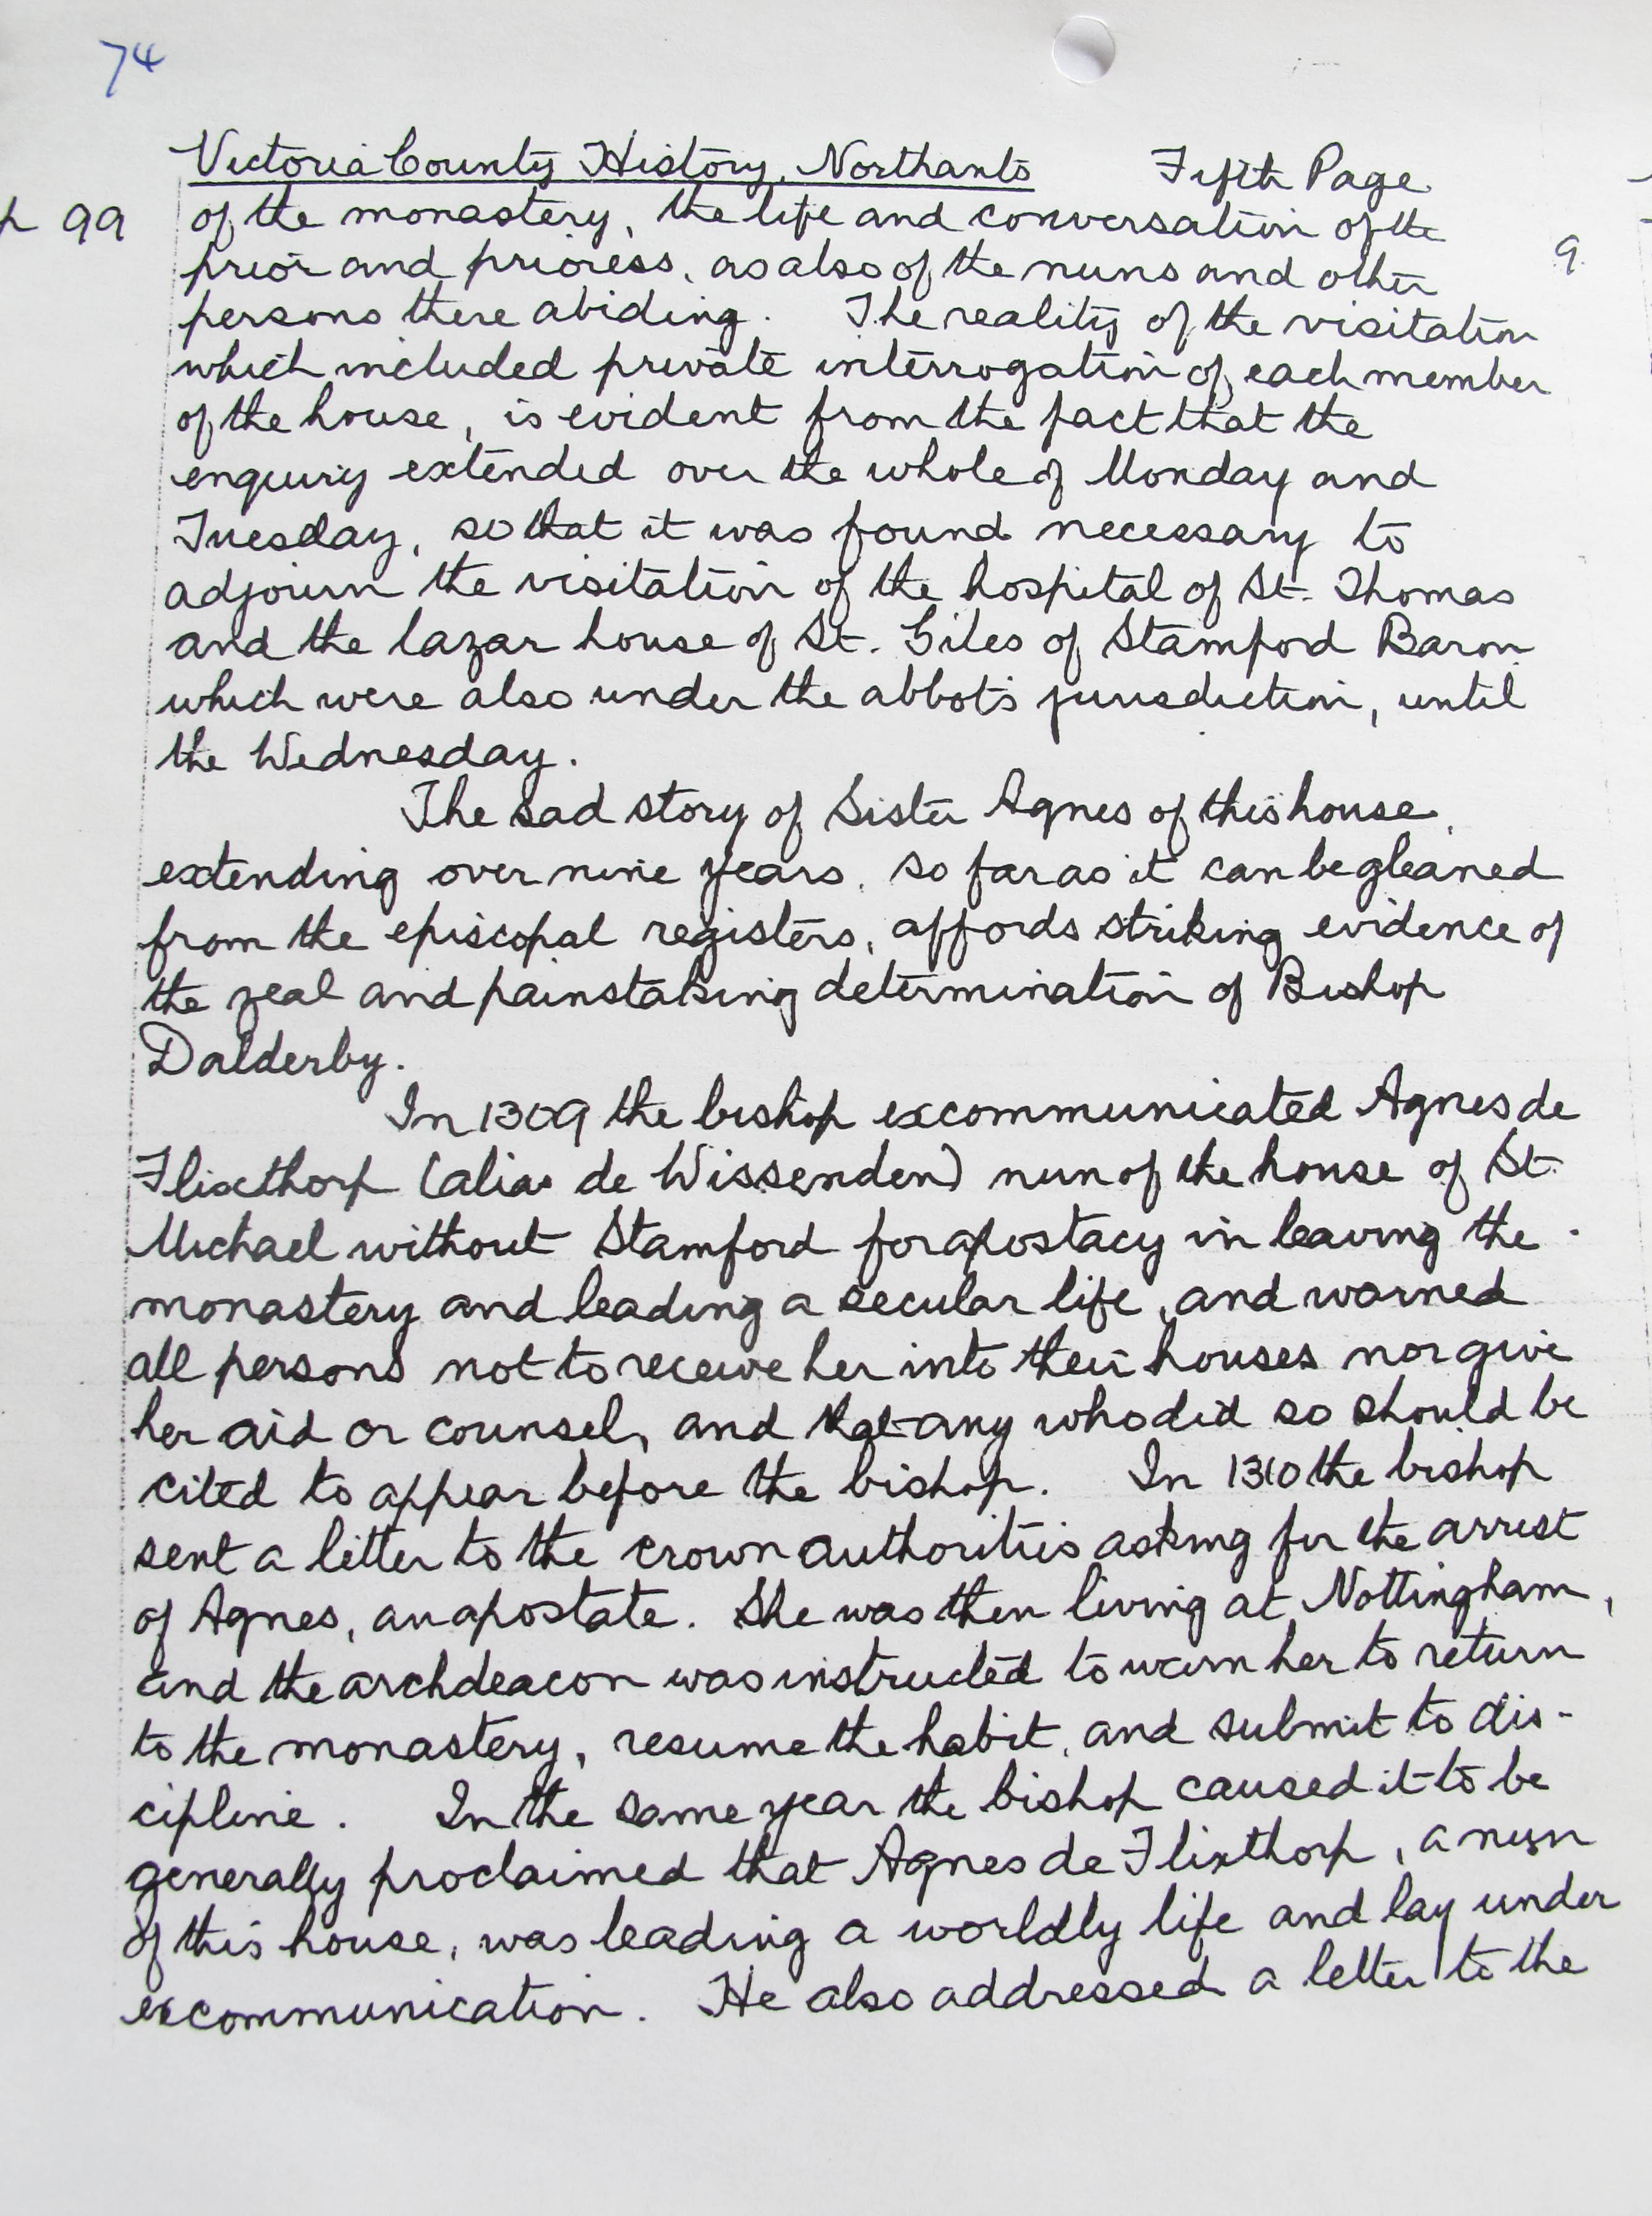 74
Victoria County History, Northants Fifth Page
p 99 of the monastery, the life and conversation of the
prior and prioress, as also of the nuns and other
9.
persons there abiding. The reality of the visitation
which included private interrogation of each member
of the house, is evident from the fact that the
enquiry extended over the whole of Monday and
Tuesday, so that it was found necessary to
adjourn the visitation of the hospital of St. Thomas
and the lazar house of St. Giles of Stamford Baron
which were also under the abbot's jurisdiction, until
the Wednesday.
The sad story of Sister Agnes of this house,
extending over nine years, so far as it can be gleaned
from the episcopal registers, affords striking evidence of
the zeal and painstaking determination of Bishop
Dalderby.
In 1309 the bishop excommunicated Agnes de
Flixthorp (alias de Wissenden) nun of the house of St.
Michael without Stamford for apostacy in leaving the
monastery and leading a secular life, and warned
all persons not to receive her into their houses nor give
her aid or counsel, and that any who did so should be
cited to appear before the bishop. In 1310 the bishop
sent a letter to the crown authorities asking for the arrest
of Agnes, an apostate. She was then living at Nottingham,
and the archdeacon was instructed to warn her to return
to the monastery, resume the habit, and submit to dis-
cipline. In the same year the bishop caused it to be
generally proclaimed that Agnes de Flixthorp, a nun
of this house, was leading a worldly life and lay under
excommunication. He also addressed a letter to the